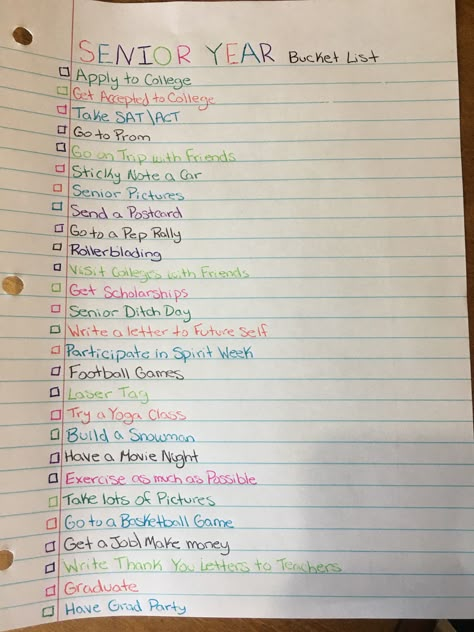 SENIOR YEAR Bucket List
Apply to College
Get Accepted to College
Take SAT\ACT
Go to Prom
Go on Trip with Friends
Sticky Note a Car
Senior Pictures
Send a Postcard
Go to a Pep Rally
Rollerblading
Visit Colleges with Friends
Get Scholarships
Senior Ditch Day
Write a letter to Future Self
Participate in Spirit Week
Football Games
Laser Tag
Try a Yoga Class
Build a Snowman
Have a Movie Night
Exercise as much as Possible
Take lots of Pictures
Go to a Basketball Game
Get a Job\Make money
Write Thank You Letters to Teachers
Graduate
Have Grad Party